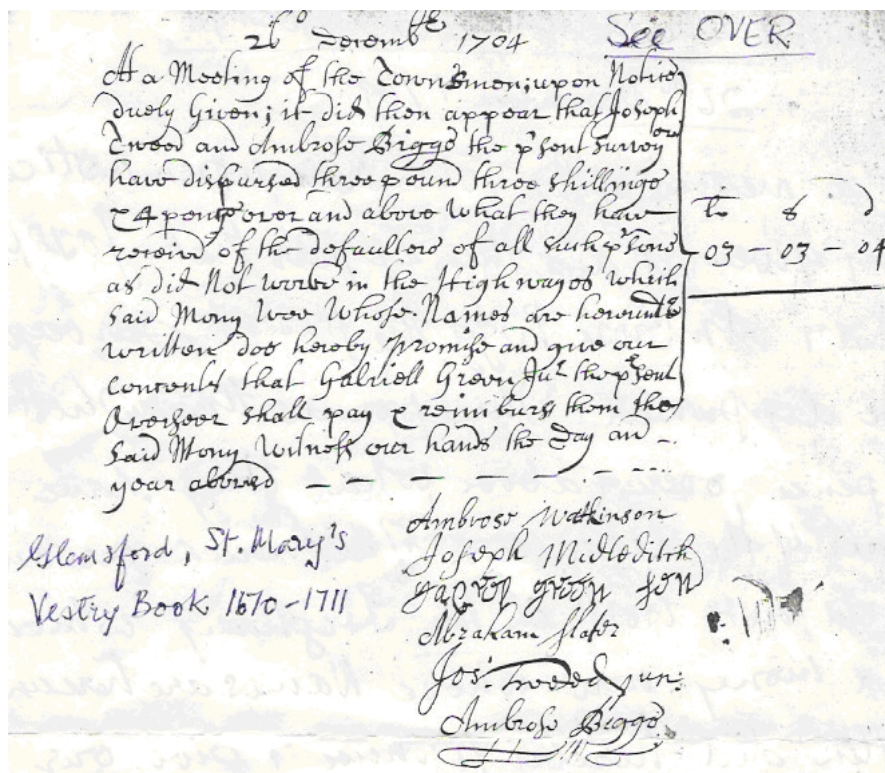 26º Decembᵗᵉ 1704
See OVER
At a Meeting of the Townsmen; upon Notice
duely Given; it did then appear that Joseph
Tweed and Ambrose Biggs the pʳsent Surveyoʳˢ
have dispursed three pound three shillings
& 4 pence over and above what they have
receivᵈ of the defaulters of all such pʳsons
as did Not worke in the Highwayes which
said Mony Wee whose Names are hereunto
written doe hereby Promise and give our
Concents that Gabriell Green Junʳ the pʳsent
Overseer shall pay & reimburss them the
said Mony Witness our hands the Day and
year abovsd
lb s d
03 – 03 – 04
Ambrose Watkinson
Joseph Midleditch
green sen
Abraham Slater
Jos: Tweed Jun:
Ambrose Biggs
Glemsford, St. Mary's
Vestry Book 1670-1711